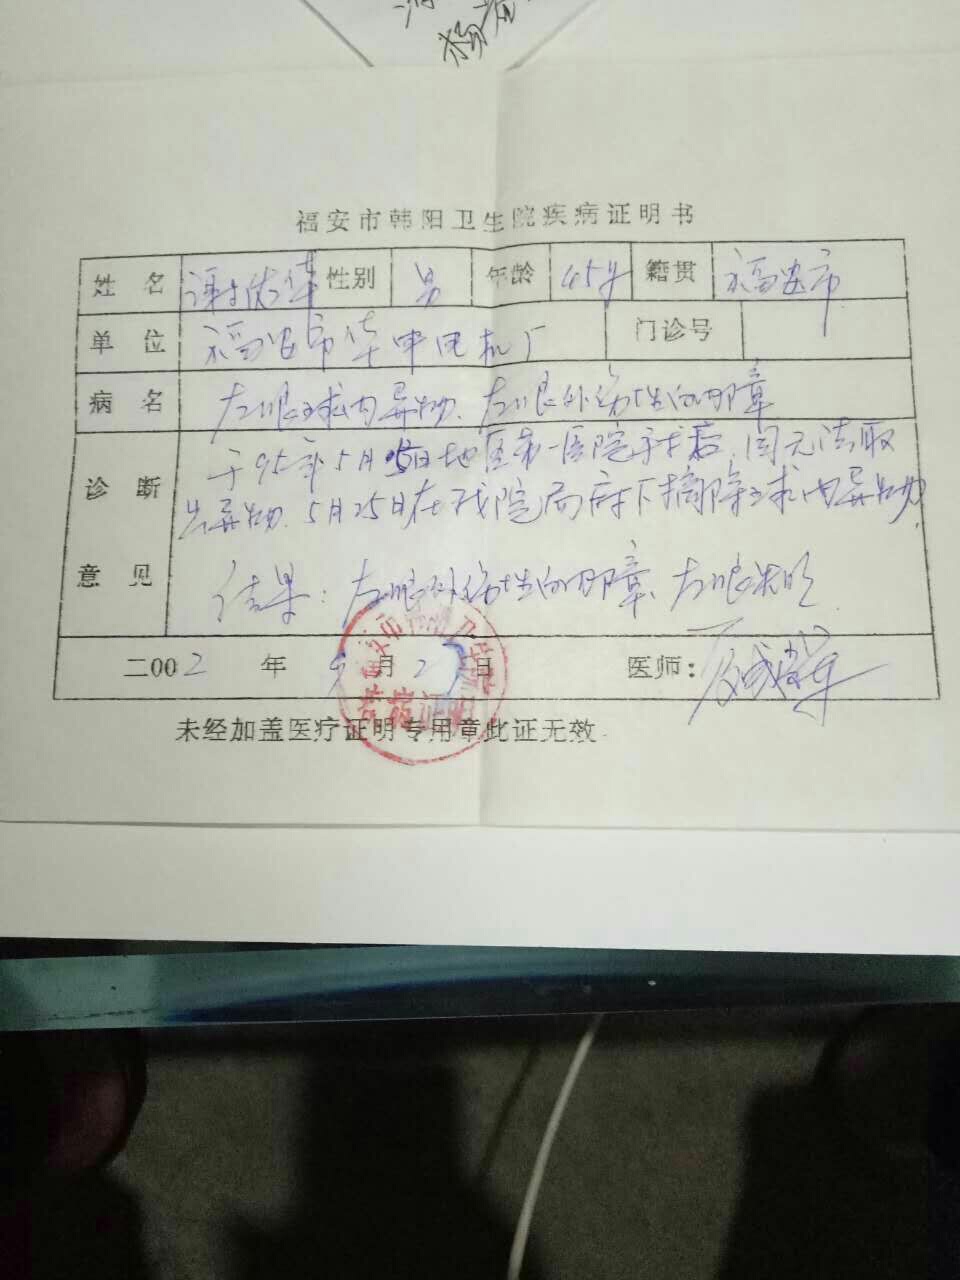 杨
福安市韩阳卫生院疾病证明书
姓名 谢 华 性别 男 年龄 45岁 籍贯 福安市
单位 福安市华 电机厂 门诊号
病名 左眼球内异物、左眼外伤性白内障
诊断意见 于95年5月5日地区第一医院手术后,因无法取
出异物.5月25日在我院局麻下摘除球内异物.
结果:左眼外伤性白内障、左眼失明
二〇〇2年 月2 日 医师:
未经加盖医疗证明专用章此证无效